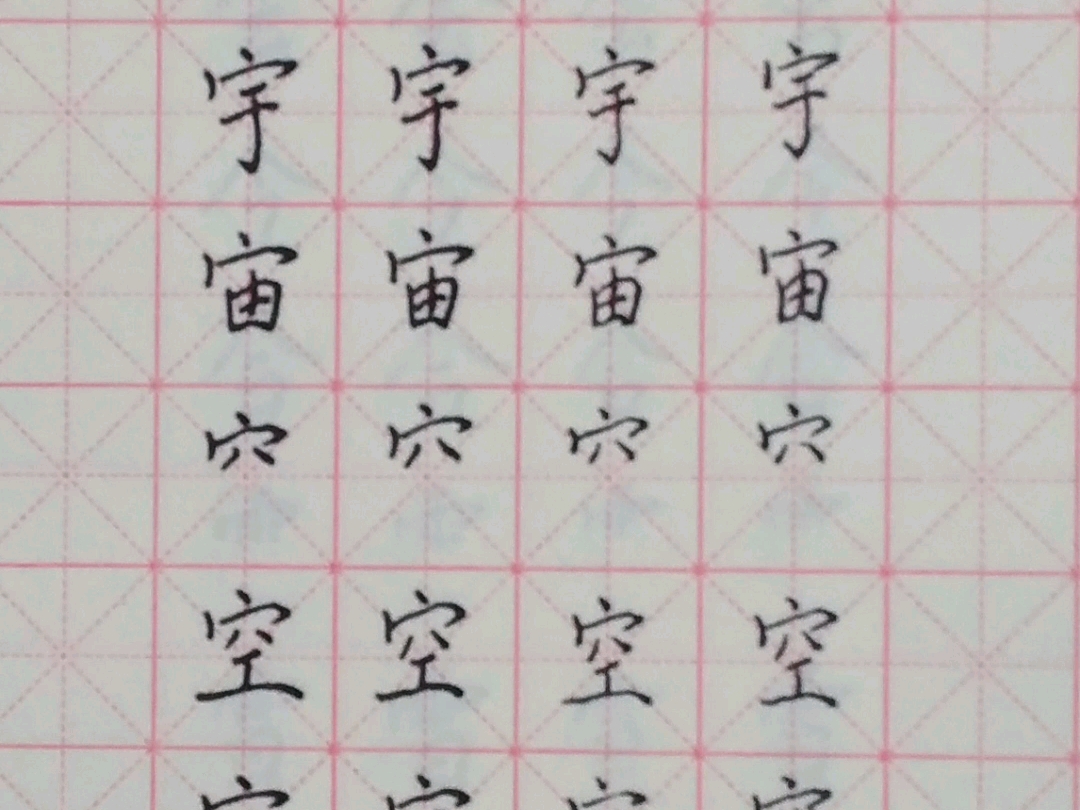 宇宇宇宇
宙宙宙宙
穴穴穴穴
空空空空